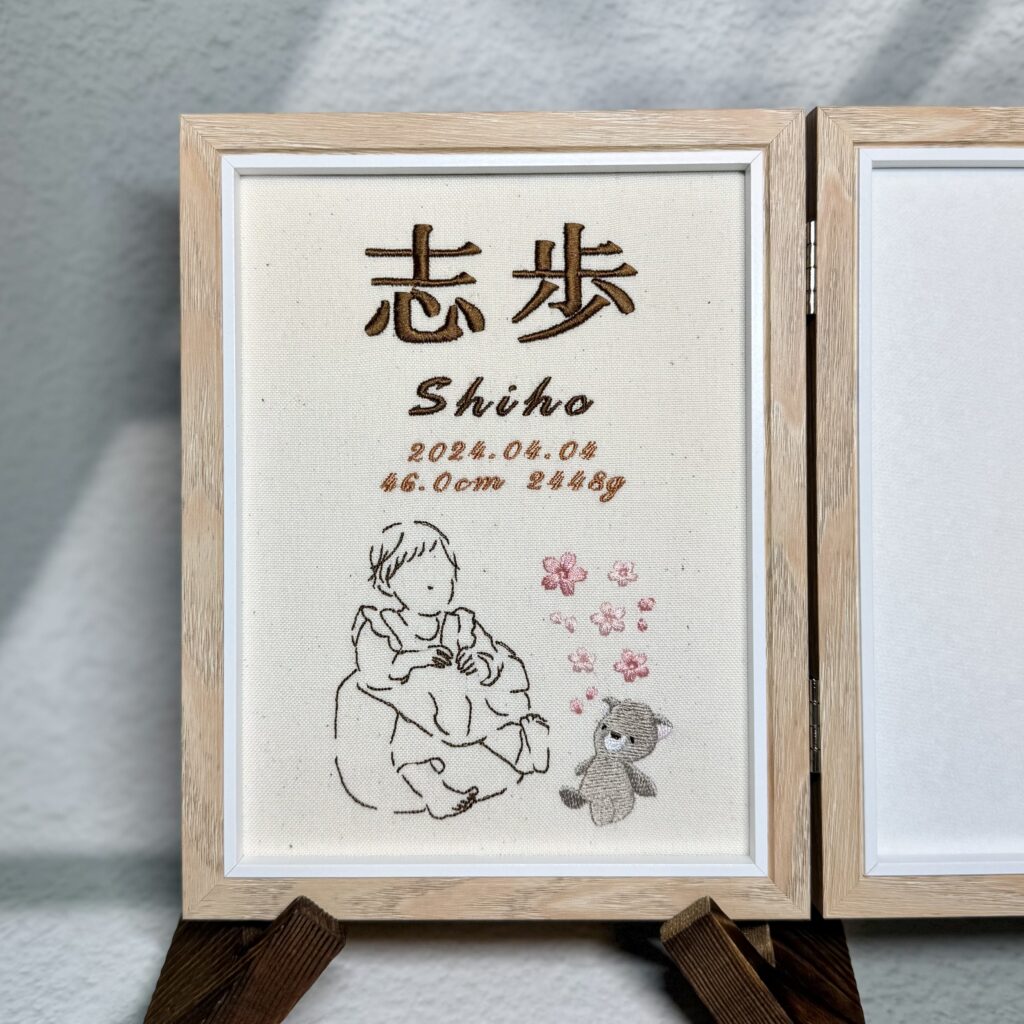 志歩
Shiho
2024.04.04
46.0cm 2448g